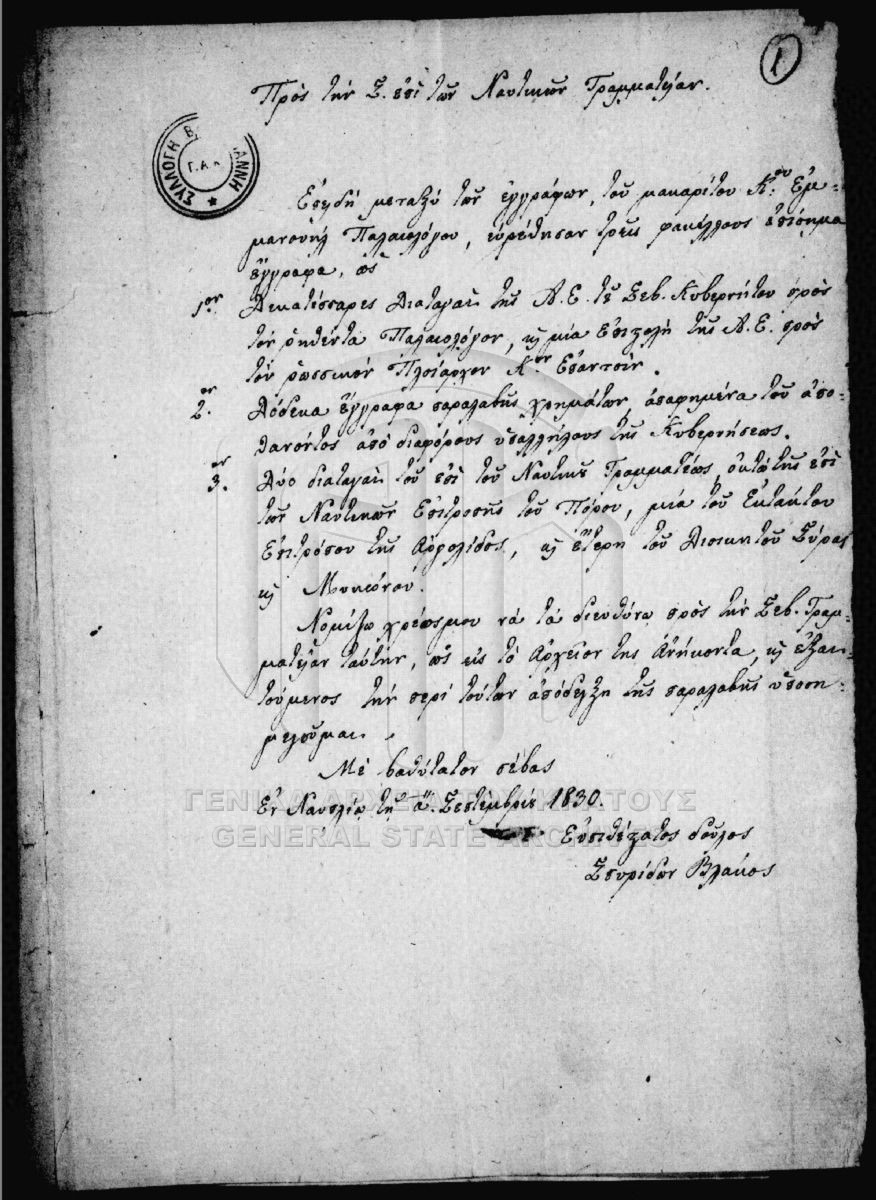 1
Πρὸς τὴν Σ. ἐπὶ τῶν Ναυτικῶν Γραμματείαν.
ΣΥΛΛΟΓΗ ΒΛ ΑΝΝΗ
Γ.Α.Κ
Ἐπειδὴ μεταξὺ τῶν ἐγγράφων, τοῦ μακαρίτου Κ:ου Ἐμ-
μανουὴλ Παλαιολόγου, εὑρέθησαν τρεῖς φακέλλους ἐπίσημα
ἔγγραφα, ὡς
1ον. Δεκατέσσαρες Διαταγαὶ τῆς Α. Ε. τοῦ Σεβ. Κυβερνήτου πρὸς
τὸν ῥηθέντα Παλαιολόγον, κ μία ἐπιστολὴ τῆς Α. Ε. πρὸς
τὸν ῥωσσικὸν Πλοίαρχον Κον
2.ον Δώδεκα ἔγγραφα παραλαβῆς χρημάτων, τοῦ ἀπο-
θανόντος ἀπὸ διαφόρους ὑπαλλήλους τῆς Κυβερνήσεως.
3.ον Δύο διαταγαὶ τοῦ ἐπὶ τοῦ Ναυτικοῦ Γραμματέως, ὀκτὼ τῆς ἐπὶ
τῶν Ναυτικῶν Ἐπιτροπῆς τοῦ Πόρου, μία τοῦ Ἐκτάκτου
Ἐπιτρόπου τῆς Ἀργολίδος, κ ἑτέρη τοῦ Διοικητοῦ Σύρας
κ Μυκώνου.
Νομίζω χρέωςμου νὰ τὰ διευθύνω πρὸς τὴν Σεβ. Γραμ-
ματείαν ταύτην, ὡς εἰς τὸ Ἀρχεῖον της ἀνήκοντα, κ ἐξαι-
τούμενος τὴν περὶ τούτων ἀπόδειξη τῆς παραλαβῆς ὑποση-
μειοῦμαι.
Μὲ βαθύτατον σέβας
Ἐν Ναυπλίῳ τῇ α. Σεπτεμβρίου 1830.
Εὐπιθέστατος δοῦλος
Σπυρίδων Βλάκος
ΓΕΝΙΚΑ ΑΡΧΕΙΑ ΤΟΥ ΚΡΑΤΟΥΣ
GENERAL STATE ARCHIVES